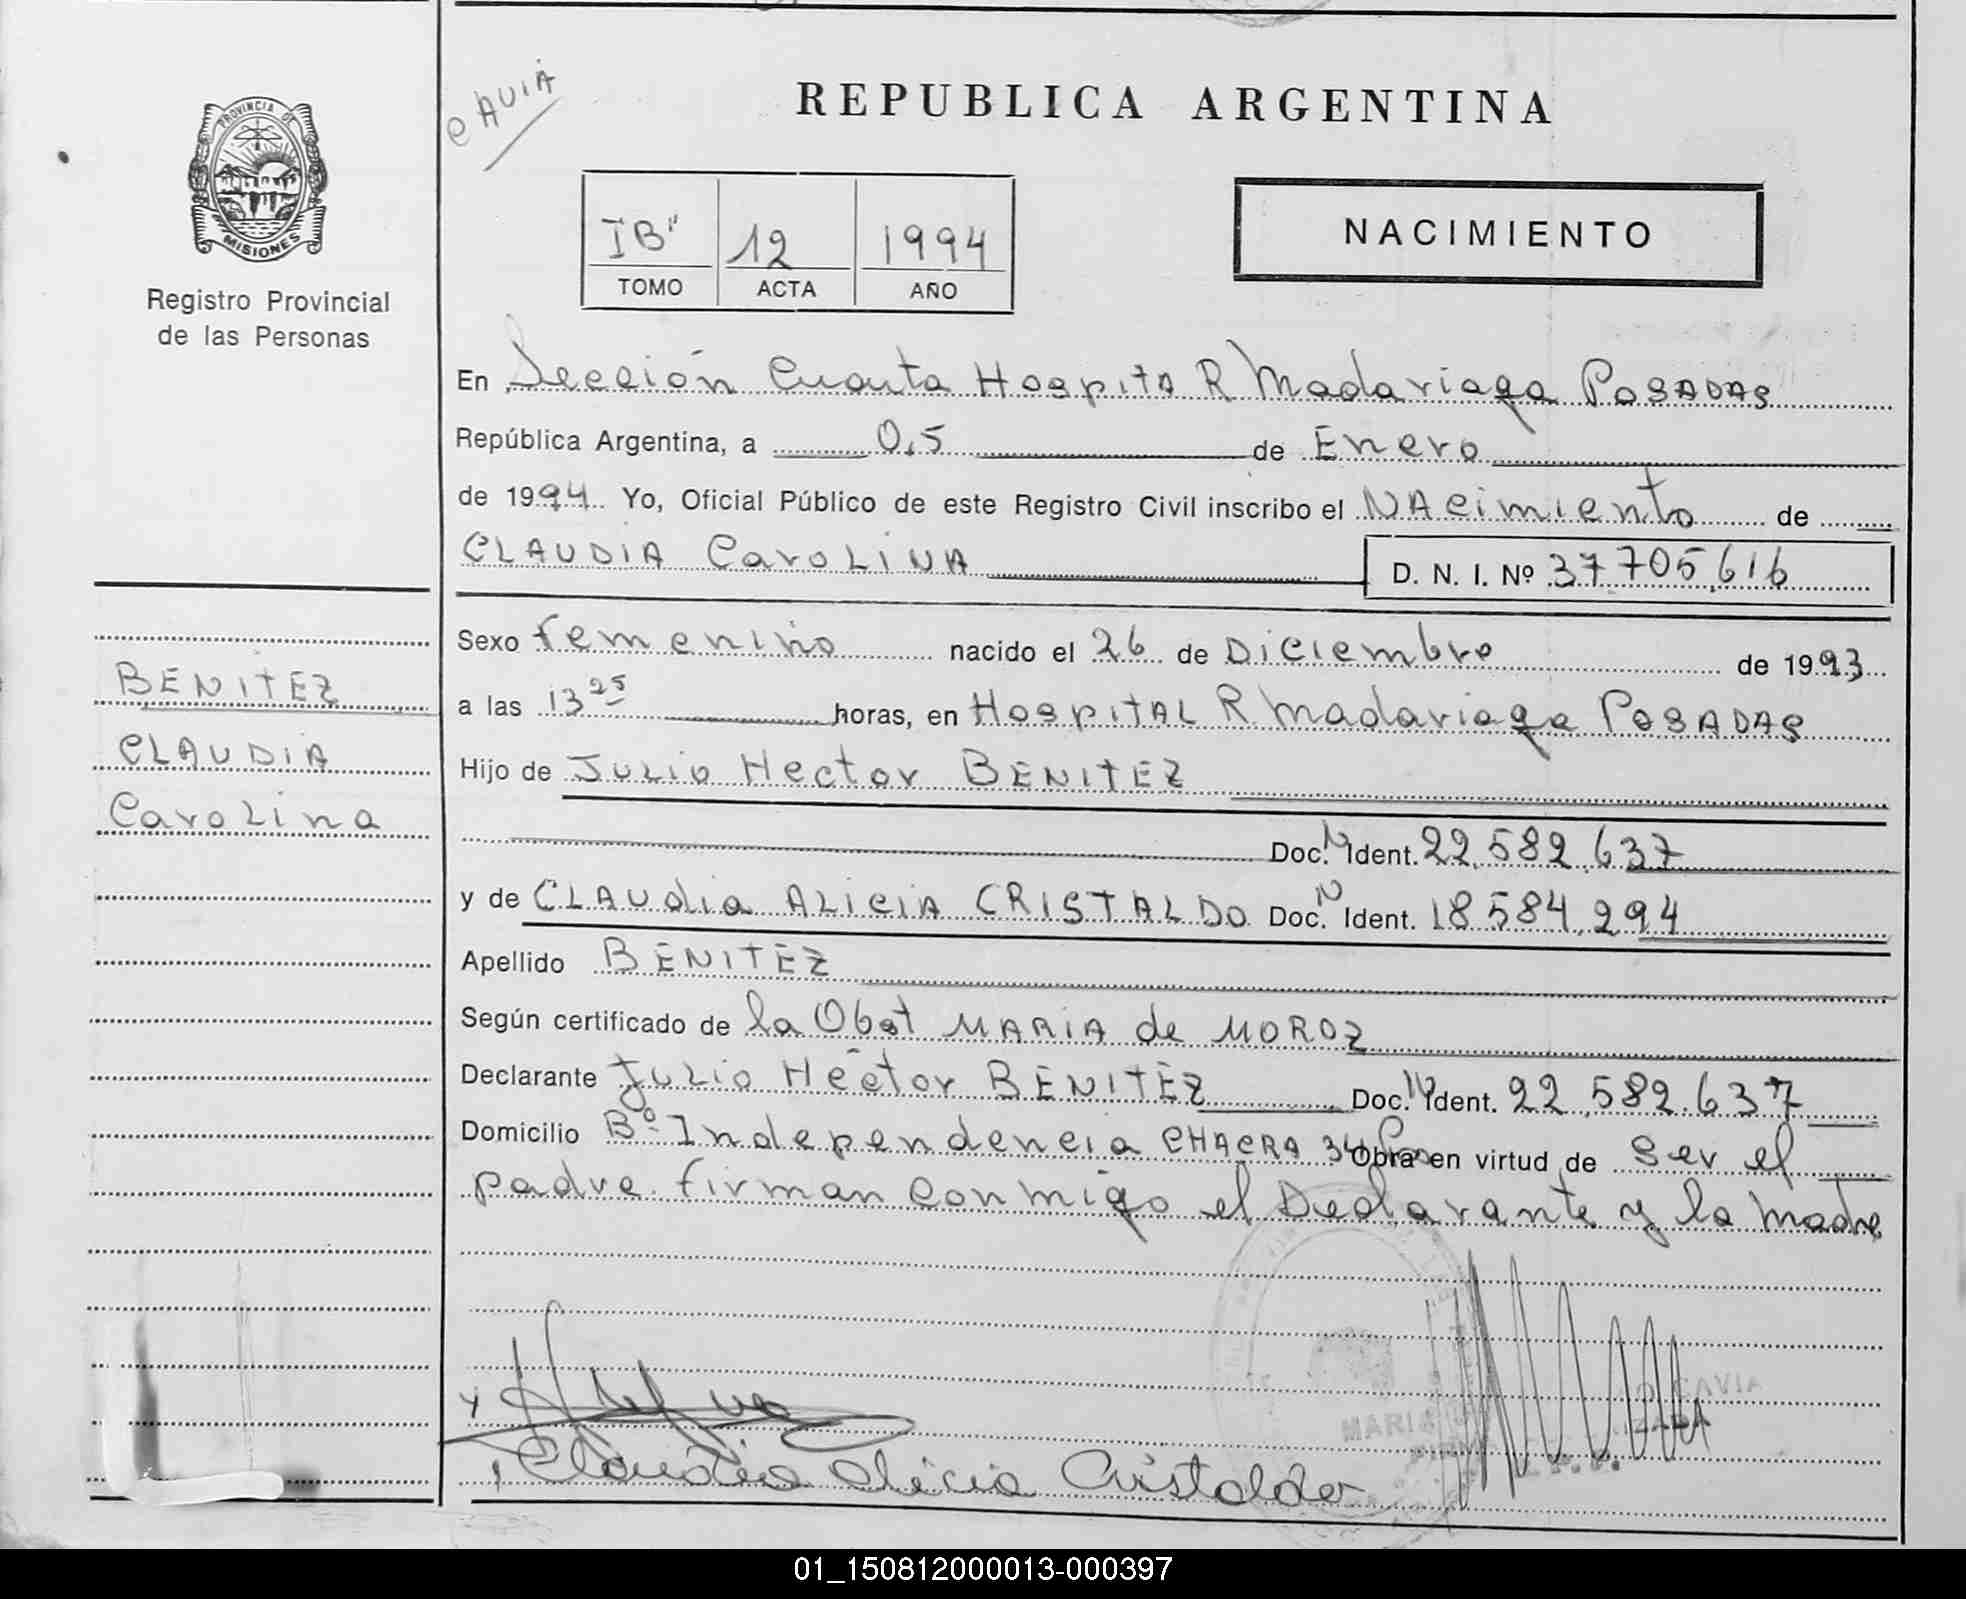 REPUBLICA ARGENTINA
PROVINCIA DE
MISIONES
Registro Provincial
de las Personas
IB" 12 1994
TOMO ACTA AÑO
NACIMIENTO
En Sección Cuarta Hospital R Madariaga POSADAS
República Argentina, a 05 de Enero
de 1994 Yo, Oficial Público de este Registro Civil inscribo el NAcimiento de
CLAUDIA CaroLiNA D. N. I. Nº 37705616
Sexo femenino nacido el 26 de Diciembre de 1993
a las 13 25 horas, en HospiTAL R Madariaga POSADAS
Hijo de JULio Hector BENITEZ
Doc. N Ident. 22.582.637
y de CLAUdia ALiciA CRISTALDO Doc. N Ident. 18584.294
Apellido BENITEZ
Según certificado de la Obst MARIA de MOROZ
Declarante JULio Héctor BENITEZ Doc. N Ident. 22.582.637
Domicilio Bº Independencia CHACRA 34 Obra en virtud de ser el
padre. firman conmigo el Declarante y la madre
BENITEZ
CLAUDIA
CaroLina
Claudia Alicia Cristaldo
MARIA
01_150812000013-000397